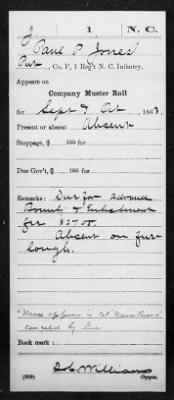 J 1 N. C.
Paul P. Jones
Pvt, Co. F, 1 Reg't N. C. Infantry.
Appears on
Company Muster Roll
for Sept & Oct, 1863.
Present or absent Absent
Stoppage, $ 100 for
Due Gov't, $ 100 for
Remarks: Due for advance
Bounty &
for $27.00.
Absent on fur
lough.
"Name appears in Col
canceled by line
Book mark:
J. C. Williams
Copyist.